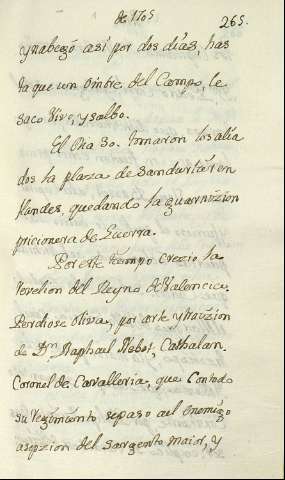 de 1705
265.
y nabegò así por dos días, has
ta que un ombre del Campo, le
saco Vivo, y salbo.
El Dia 30. tomaron los alia
dos la plaza de en
flandes, quedando la guarnizion
pricionera de Guerra.
Por este tiempo crezio la
revelion del Reyno de Valencia.
Perdiose oliva, por arte y traizion
de Dn. Raphael Nebot, Cathalan.
Coronel de Cavalleria, que con todo
su regimiento se paso al Enemigo
a sepzion del sargento maior, y